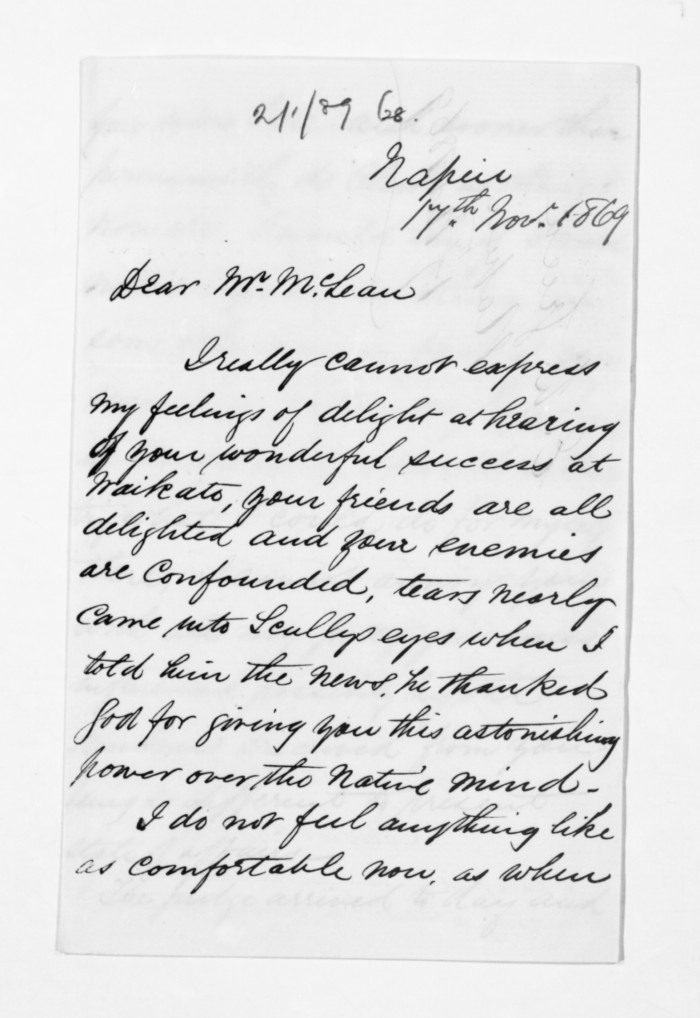 Napier
17th Nov. 1869
Dear Mr. McLean
I really cannot express
my feelings of delight at hearing
of your wonderful success at
Waikato, your friends are all
delighted and your enemies
are confounded, tears nearly
came into Scullys eyes when I
told him the news, he thanked
God for giving you this astonishing
power over the Native mind -
I do not feel anything like
as comfortable now, as when